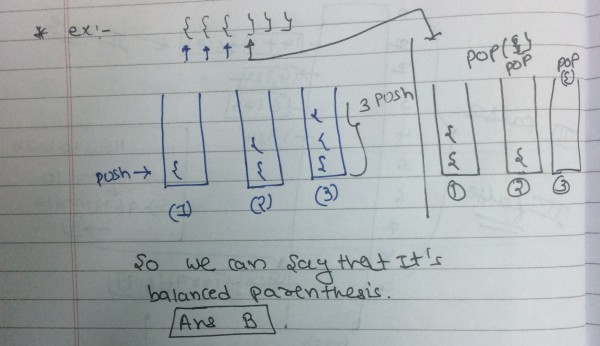 * ex:- { { { } } }
POP({)
POP
POP
({)
3 PUSH
{
{ { {
{ {
PUSH → { { { { {
(1) (2) (3) ① ② ③
So we can say that It's
balanced parenthesis.
Ans B.